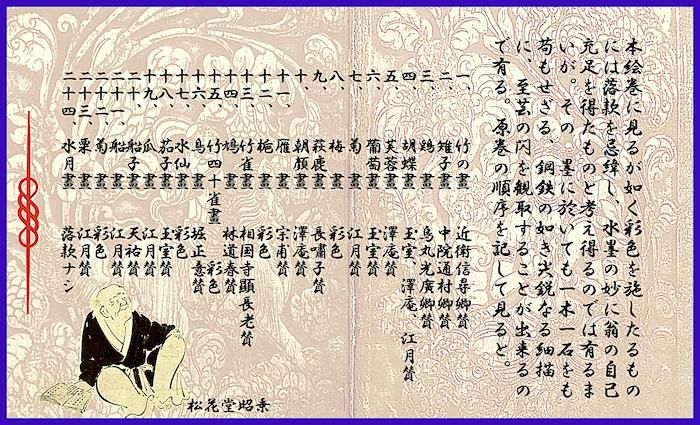 本絵巻に見るが如く彩色を施したるもの
には落款を忌緯し、水墨の妙に翁の自己
充足を得たものと考え得るのでは有るま
いが。その、墨に於いても一木一石をも
苟もせざる、鋼鉄の如き尖鋭なる細描
に、至芸の閃を観取することが出来るの
で有る。原巻の順序を記して見ると。
一、竹の畫 近衛信尋卿賛
二、雉子畫 中院通村卿賛
三、鶏畫 烏丸光廣卿賛
四、胡蝶畫 玉室、澤庵、江月賛
五、芙蓉畫 澤庵賛
六、葡萄畫 玉室賛
七、菊畫 江月賛
八、梅畫 彩色
九、萩鹿畫 長嘯子賛
十、朝顔畫 澤庵賛
十一、雁畫 宗甫賛
十二、梔畫 彩色
十三、竹雀畫 相国寺顕長老賛
十四、鳩畫 林道春賛
十五、竹四十雀畫 彩色
十六、鳥畫 堀正意賛
十七、水仙畫 彩色
十八、茄子畫 玉室賛
十九、瓜畫 江月賛
二十、船子畫 天祐賛
二十一、船畫 江月賛
二十二、菊畫 彩色
二十三、栗畫 江月賛
二十四、水月畫 落款ナシ
松花堂昭乗